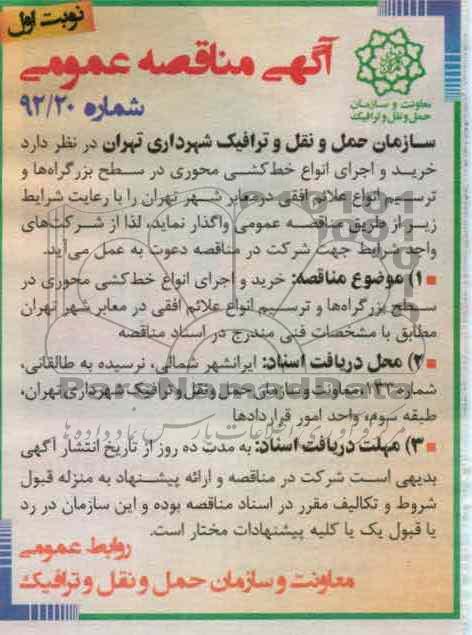 نوبت اول
آگهی مناقصه عمومی
شماره ۹۲/۲۰
معاونت و سازمان
حمل و نقل و ترافیک
سازمان حمل و نقل و ترافیک شهرداری تهران در نظر دارد
خرید و اجرای انواع خط‌کشی محوری در سطح بزرگراه‌ها و
ترسیم انواع علائم افقی در معابر شهر تهران را با رعایت شرایط
زیر از طریق مناقصه عمومی واگذار نماید، لذا از شرکت‌های
واجد شرایط جهت شرکت در مناقصه دعوت به عمل می‌آید.
۱) موضوع مناقصه: خرید و اجرای انواع خط‌کشی محوری در
سطح بزرگراه‌ها و ترسیم انواع علائم افقی در معابر شهر تهران
مطابق با مشخصات فنی مندرج در اسناد مناقصه
۲) محل دریافت اسناد: ایرانشهر شمالی، نرسیده به طالقانی،
شماره ۱۳۲، معاونت و سازمان حمل و نقل و ترافیک شهرداری تهران،
طبقه سوم، واحد امور قراردادها
ParsNamadData
۳) مهلت دریافت اسناد: به مدت ده روز از تاریخ انتشار آگهی
بدیهی است شرکت در مناقصه و ارائه پیشنهاد به منزله قبول
شروط و تکالیف مقرر در اسناد مناقصه بوده و این سازمان در رد
یا قبول یک یا کلیه پیشنهادات مختار است.
روابط عمومی
معاونت و سازمان حمل و نقل و ترافیک